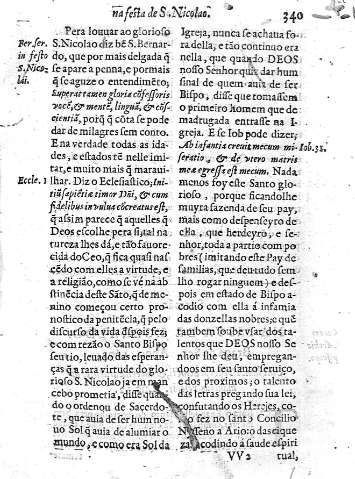 na festa de S. Nicolao.
340
Ber. ser.
in festo
S. Nico-
lai.
Eccle. 1
Pera louuar ao glorioso
S. Nicolao diz bẽ S. Bernar-
do, que por mais delgada q̃
se apare a penna, e por mais
q̃ se aguze o entendimẽto;
Superat tamen gloria cõfessoris
vocẽ, & mentẽ, linguã, & cõs-
ciẽtiã, porq̃ q̃ cõta se pode
dar de milagres sem conto.
E na verdade todas as ida-
des, e estados tẽ nelle imi-
tar, e muito mais q̃ maraui-
lhar. Diz o Eclesiastico; Ini-
tiũ sapiẽtiæ timor Dñi, & cum
fidelibus in vulua cõcreatus est,
q̃ assi parece q̃ aquelles q̃
Deos escolhe pera si, tal na
tureza lhes dá, e tão fauore
cida do Ceo, q̃ fica quasi nas
cẽdo com elles a virtude, e
a religião, como se vè na abs
tinẽcia deste Sãto, q̃ de me-
nino começou certo pro-
nostico da penitẽcia, q̃ pelo
discurso da vida dẽpois fez;
e com rezão o Santo Bispo
seu tio, leuado das esperan-
ças q̃ a rara virtude do glo-
rioso S. Nicolao ja em man
cebo prometia, disse quan
do o ordenou de Sacerdo-
te, que auia de ser hum no-
uo Sol q̃ auia de alumiar o
mundo, e como era Sol da
Igreja, nunca se achaua fo-
ra della, e tão continuo era
nella, que quando DEOS
nosso Senhor quis dar hum
sinal de quem auia de ser
Bispo, disse que tomassem
o primeiro homem que de
madrugada entrasse na I-
greja. E se Iob pode dizer;
Ab infantia creuit mecum mi-
seratio, & de vtero matris
meæ egressa est mecum. Nada
menos foy este Santo glo-
rioso, porque ficandolhe
muyta fazenda de seu pay,
mais como despenseyro de
ella, que herdeyro, e se-
nhor, toda a partio com po
bres (imitando este Pay de
familias, que deu tudo sem
lho rogar ninguem) e des-
pois em estado de Bispo a-
codio com ella á infamia
das donzellas nobres; e que
tambem soube vsar dos ta-
lentos que DEOS nosso Se
nhor lhe deu, empregan-
doos em seu santo seruiço,
e dos proximos; o talento
das letras pregando sua lei,
confutando os Herejes, co-
mo fez no santo Concilio
Nisseno a Ario: das rique
zas, acodindo á saude espiri
Iob. 31.
VV 2
tual,